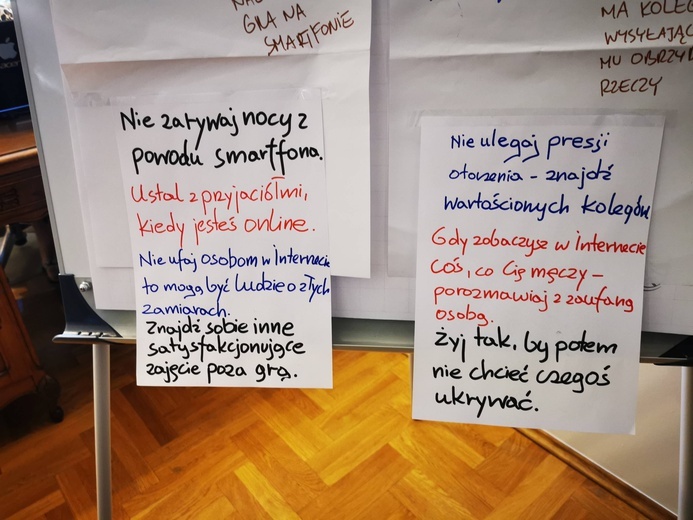 GRA NA
SMARTFONIE
MA KOLEG
WYSYŁAJĄC
MU OBRZYD
RZECZY
Nie zarywaj nocy z
powodu smartfona.
Ustal z przyjaciółmi,
kiedy jesteś online.
Nie ufaj osobom w Internecie
to mogą być ludzie o złych
zamiarach.
Znajdź sobie inne
satysfakcjonujące
zajęcie poza grą.
Nie ulegaj presji
otoczenia - znajdź
wartościonych kolegów
Gdy zobaczysz w internecie
coś, co Cię męczy -
porozmawiaj z zaufaną
osobą.
Żyj tak, by potem
nie chcieć czegoś
ukrywać.